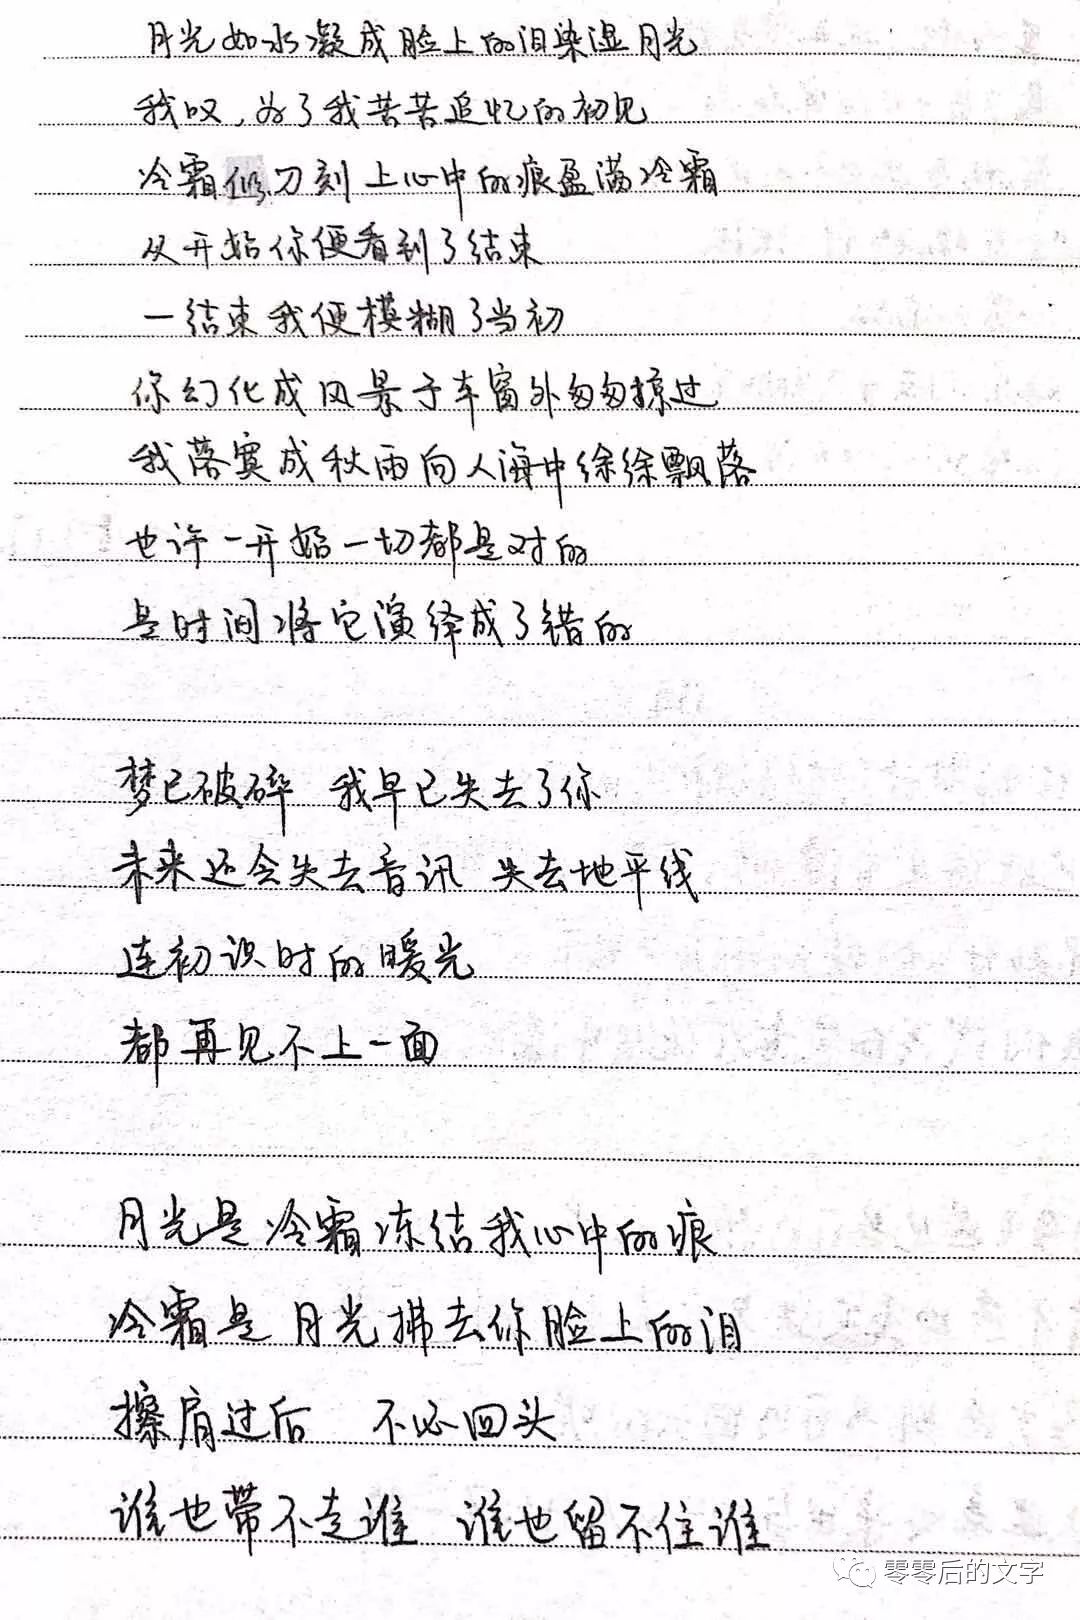 月光如水凝成脸上的泪染湿月光
我叹,为了我苦苦追忆的初见
冷霜似刀刻上心中的痕盈满冷霜
从开始你便看到了结束
一结束我便模糊了当初
你幻化成风景于车窗外匆匆掠过
我落寞成秋雨向人海中徐徐飘落
也许一开始一切都是对的
是时间将它演绎成了错的
梦已破碎 我早已失去了你
未来还会失去音讯 失去地平线
连初识时的暖光
都再见不上一面
月光是冷霜冻结我心中的痕
冷霜是月光拂去你脸上的泪
擦肩过后 不必回头
谁也带不走谁 谁也留不住谁
零零后的文字